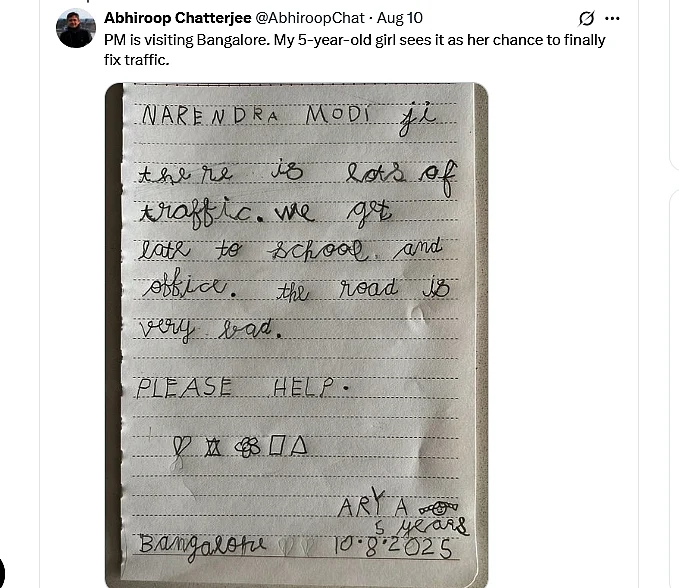 Abhiroop Chatterjee @AbhiroopChat · Aug 10
PM is visiting Bangalore. My 5-year-old girl sees it as her chance to finally
fix traffic.
NARENDRA MODI ji
there is lots of
traffic. we get
late to school and
office. the road is
very bad.
PLEASE HELP.
ARYA
5 years
Bangalore 10.8.2025